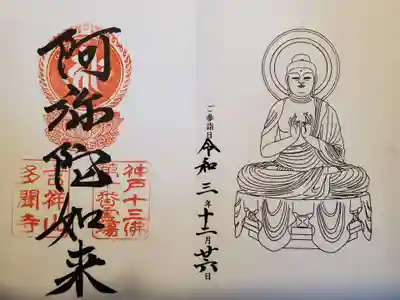 ご参詣日 令和三年十二月廿六日
阿弥陀如来
神戸十三佛
番霊場
吉祥山
多聞寺